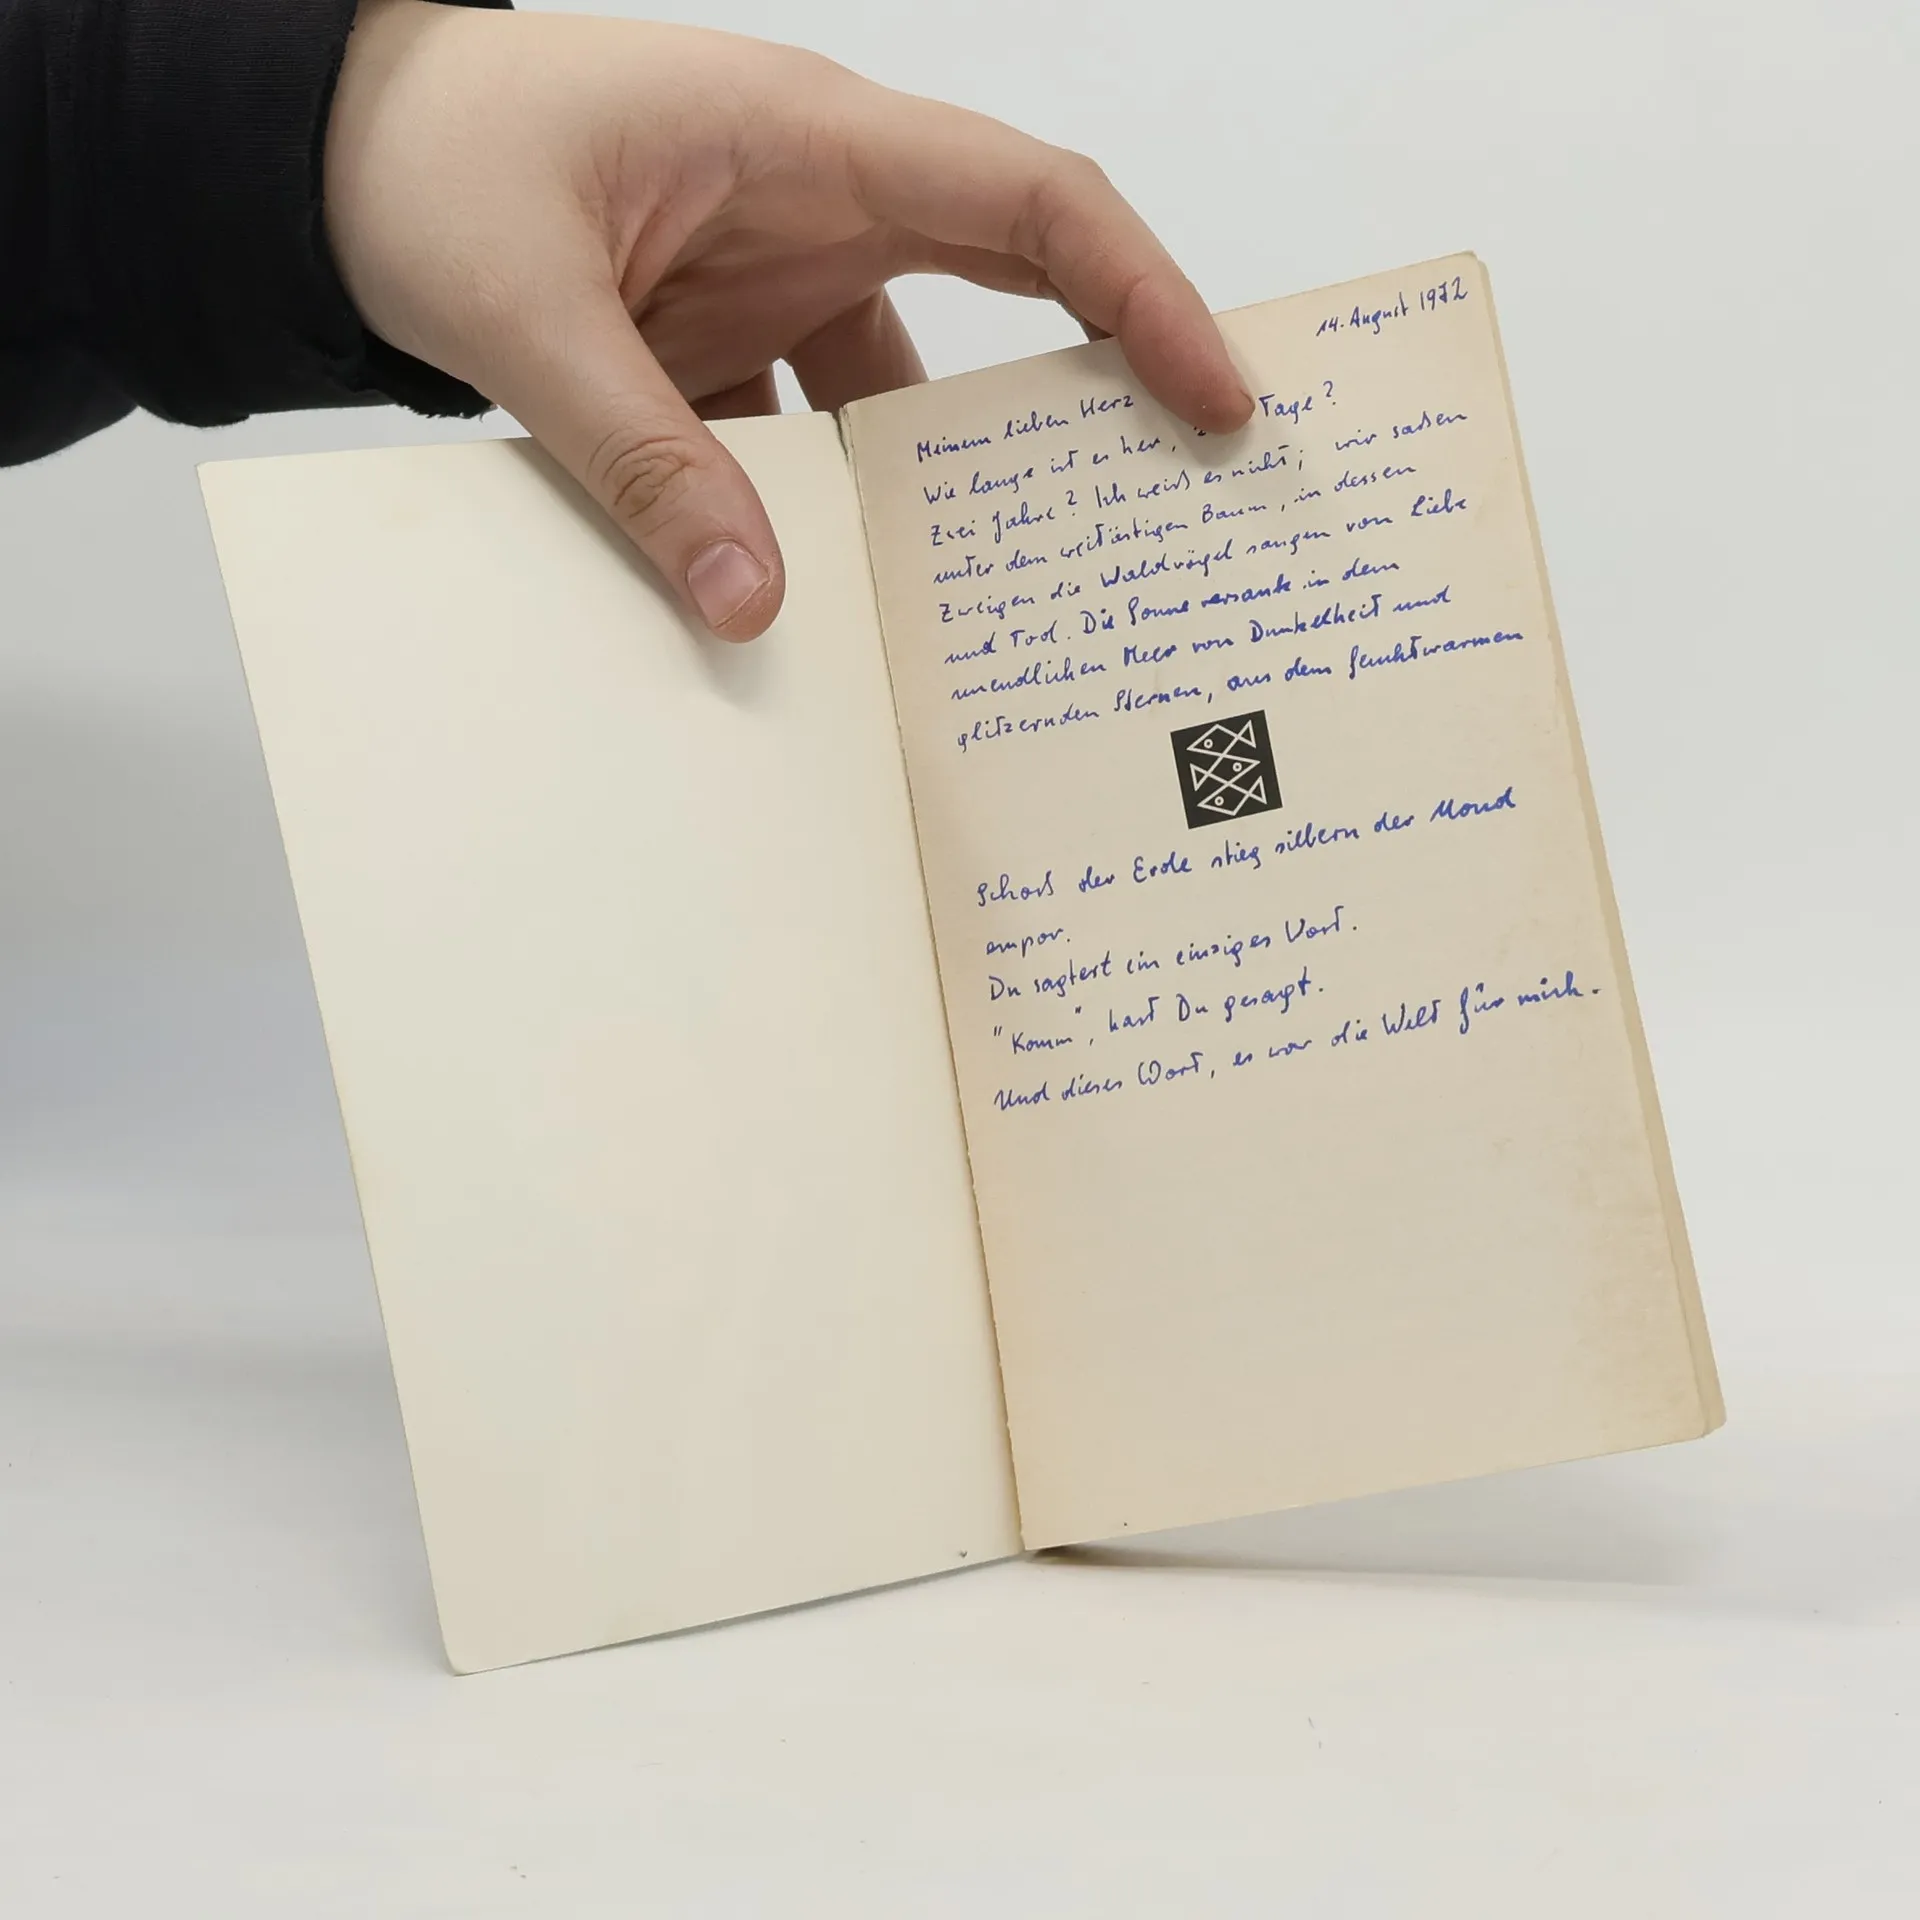 14. August 1972
Meinem lieben Herz
Wie lange ist es her, Tage?
Zwei Jahre? Ich weiß es nicht; wir saßen
unter dem weitästigen Baum, in dessen
Zweigen die Waldvögel sangen von Liebe
und Tod. Die Sonne versank in dem
unendlichen Meer von Dunkelheit und
glitzernden Sternen, aus dem feuchtwarmen
Schoß der Erde stieg silbern der Mond
empor.
Du sagtest ein einziges Wort.
"Komm", hast Du gesagt.
Und dieses Wort, es war die Welt für mich.